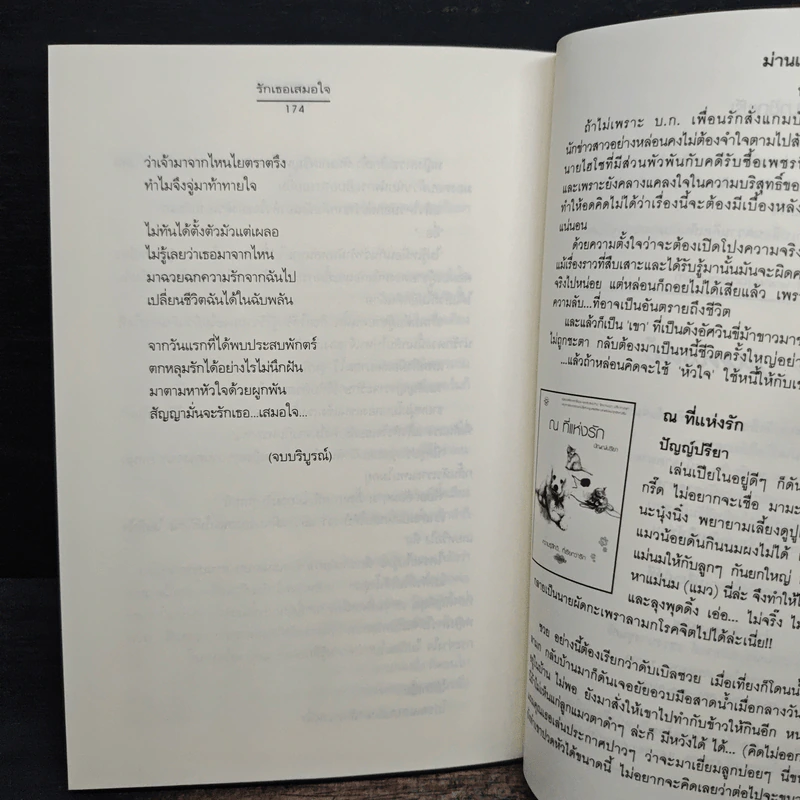 รักเธอเสมอใจ
174
ว่าเจ้ามาจากไหนไยตราตรึง
ทำไมจึงจู่มาท้าทายใจ
ไม่ทันได้ตั้งตัวมัวแต่เผลอ
ไม่รู้เลยว่าเธอมาจากไหน
มาฉวยฉกความรักจากฉันไป
เปลี่ยนชีวิตฉันได้ในฉับพลัน
จากวันแรกที่ได้พบประสบพักตร์
ตกหลุมรักได้อย่างไรไม่นึกฝัน
มาตามหาหัวใจด้วยผูกพัน
สัญญามั่นจะรักเธอ...เสมอใจ...
(จบบริบูรณ์)
ถ้าไม่เพราะ บ.ก. เพื่อนรักสั่งแกม
นักข่าวสาวอย่างหล่อนคงไม่ต้องจำใจตามไป
นายไฮโซที่มีส่วนพัวพันกับคดีรับซื้อเพชร
และเพราะยังคลางแคลงใจในความบริสุทธิ์ของ
ทำให้อดคิดไม่ได้ว่าเรื่องนี้จะต้องมีเบื้องหลัง
แน่นอน
ด้วยความตั้งใจว่าจะต้องเปิดโปงความจริง
แม้เรื่องราวที่สืบเสาะและได้รับรู้มานั้นมันจะผิด
จริงไปหน่อย แต่หล่อนก็ถอยไม่ได้เสียแล้ว
ความลับ...ที่อาจเป็นอันตรายถึงชีวิต
และแล้วก็เป็น 'เขา' ที่เป็นดังอัศวินขี่ม้าขาวมา
ไม่ถูกชะตา กลับต้องมาเป็นหนี้ชีวิตครั้งใหญ่
...แล้วถ้าหล่อนคิดจะใช้ 'หัวใจ' ใช้หนี้ให้กับ
ณ ที่แห่งรัก
ณ ที่แห่งรัก
ปัญญ์ปรียา
เล่นเปียโนอยู่ดีๆ ก็
กรี๊ด ไม่อยากจะเชื่อ
นะนุ้งนิ่ง พยายามเลี้ยงดู
แมวน้อยดันกินนมผงไม่ได้
แม่นมให้กับลูกๆ กันยกใหญ่
หาแม่นม (แมว) นี่ล่ะ จึงทำให้
และลุงพุดดิ้ง เอ่อ... ไม่จริ๊ง
กลายเป็นนายผัดกะเพราลามกโรคจิตไปได้ล่ะเนี่ย!!
ซวย อย่างนี้ต้องเรียกว่าดับเบิลซวย เมื่อเที่ยงก็โดน
กลับบ้านมาก็ดันเจอยัยอวบมือสาดน้ำเมื่อกลางวัน
ไม่พอ ยังมาสั่งให้เขาไปทำกับข้าวให้กินอีก
ลูกแมวตาดำๆ ล่ะก็ มีหวังได้ ได้... (คิดไม่ออก
เล่นประกาศปาวๆ ว่าจะมาเยี่ยมลูกบ่อยๆ
ปวดหัวได้ขนาดนี้ ไม่อยากจะคิดเลยว่าต่อไปจะ